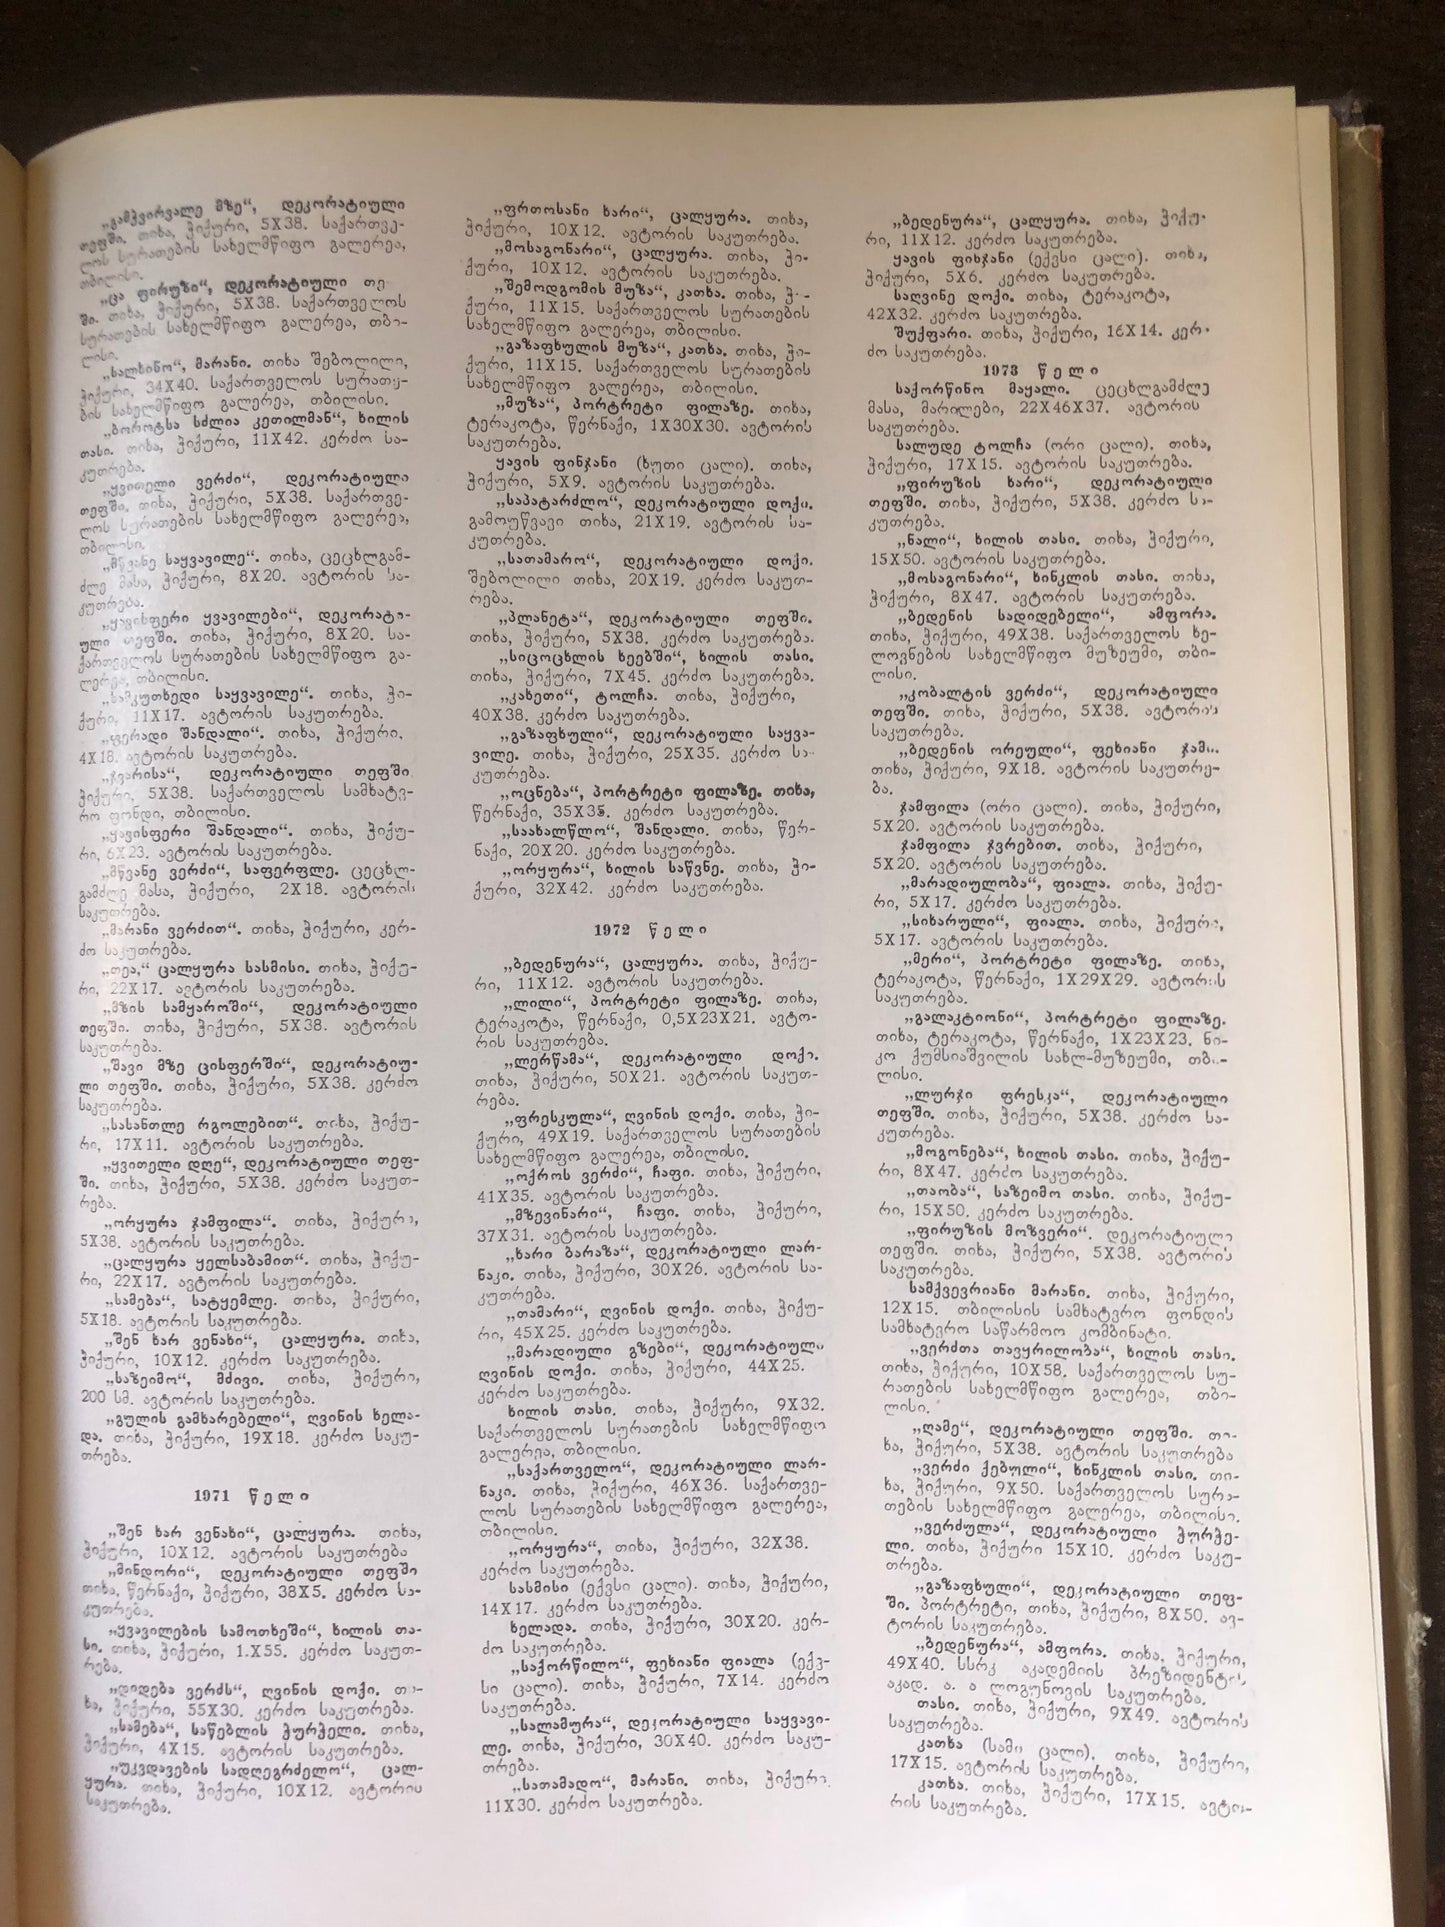 „გამჭვირვალე მზე“, დეკორატიული
თეფში. თიხა, ჭიქური, 5X38. საქართვე-
ლოს სურათების სახელმწიფო გალერეა,
თბილისი.
„ცა ფირუზი“, დეკორატიული თე-
ში. თიხა, ჭიქური, 5X38. საქართველოს
სურათების სახელმწიფო გალერეა, თბი-
ლისი.
„სალხინო“, მარანი. თიხა შებოლილი,
ჭიქური, 34X40. საქართველოს სურათე-
ბის სახელმწიფო გალერეა, თბილისი.
„ბოროტსა სძლია კეთილმან“, ხილის
თასი. თიხა, ჭიქური, 11X42. კერძო სა-
კუთრება.
„ყვითელი ვერძი“, დეკორატიული
თეფში. თიხა, ჭიქური, 5X38. საქართვე-
ლოს სურათების სახელმწიფო გალერეა,
თბილისი.
„მწვანე საყვავილე“. თიხა, ცეცხლგამ-
ძლე მასა, ჭიქური, 8X20. ავტორის სა-
კუთრება.
„ყავისფერი ყვავილები“, დეკორატი-
ული თეფში. თიხა, ჭიქური, 8X20. სა-
ქართველოს სურათების სახელმწიფო გა-
ლერეა, თბილისი.
„სამკუთხედი საყვავილე“. თიხა, ჭი-
ქური, 11X17. ავტორის საკუთრება.
„ფერადი შანდალი“. თიხა, ჭიქური,
4X18. ავტორის საკუთრება.
„ჯვარისა“, დეკორატიული თეფში
ჭიქური, 5X38. საქართველოს სამხატვ-
რო ფონდი, თბილისი.
„ყავისფერი შანდალი“. თიხა, ჭიქუ-
რი, 6X23. ავტორის საკუთრება.
„მწვანე ვერძი“, საფერფლე. ცეცხლ-
გამძლე მასა, ჭიქური, 2X18. ავტორის
საკუთრება.
„მარანი ვერძით“. თიხა, ჭიქური, კერ-
ძო საკუთრება.
„თეა,“ ცალყურა სასმისი. თიხა, ჭიქუ-
რი, 22X17. ავტორის საკუთრება.
„მზის სამყაროში“, დეკორატიული
თეფში. თიხა, ჭიქური, 5X38. ავტორის
საკუთრება.
„შავი მზე ცისფერში“, დეკორატიუ-
ლი თეფში. თიხა, ჭიქური, 5X38. კერძო
საკუთრება.
„სასანთლე რგოლებით“. თიხა, ჭიქუ-
რი, 17X11. ავტორის საკუთრება.
„ყვითელი დღე“, დეკორატიული თეფ-
ში. თიხა, ჭიქური, 5X38. კერძო საკუთ-
რება.
„ორყურა ჯამფილა“. თიხა, ჭიქური,
5X38. ავტორის საკუთრება.
„ცალყურა ყელსაბამით“. თიხა, ჭიქუ-
რი, 22X17. ავტორის საკუთრება.
„სამება“, სატყემლე. თიხა, ჭიქური,
5X18. ავტორის საკუთრება.
„შენ ხარ ვენახი“, ცალყურა. თიხა,
ჭიქური, 10X12. კერძო საკუთრება.
„საზეიმო“, მძივი. თიხა, ჭიქური,
200 სმ. ავტორის საკუთრება.
„გულის გამხარებელი“, ღვინის ხელა-
და. თიხა, ჭიქური, 19X18. კერძო საკუ-
თრება.
1971 წელი
„შენ ხარ ვენახი“, ცალყურა. თიხა,
ჭიქური, 10X12. ავტორის საკუთრება
„მინდორი“, დეკორატიული თეფში
თიხა, წერნაქი, ჭიქური, 38X5. კერძო სა-
კუთრება.
„ყვავილების სამოთხეში“, ხილის თა-
სი. თიხა, ჭიქური, 1.X55. კერძო საკუთ-
რება.
„დიდება ვერძს“, ღვინის დოქი. თი-
ხა, ჭიქური, 55X30. კერძო საკუთრება.
„სამება“, საწებლის ჭურჭელი. თიხა,
ჭიქური, 4X15. ავტორის საკუთრება.
„უკვდავების სადღეგრძელო“, ცალ-
ყურა. თიხა, ჭიქური, 10X12. ავტორის
საკუთრება.
„ფრთოსანი ხარი“, ცალყურა. თიხა,
ჭიქური, 10X12. ავტორის საკუთრება.
„მოსაგონარი“, ცალყურა. თიხა, ჭი-
ქური, 10X12. ავტორის საკუთრება.
„შემოდგომის მუზა“, კათხა. თიხა, ჭი-
ქური, 11X15. საქართველოს სურათების
სახელმწიფო გალერეა, თბილისი.
„გაზაფხულის მუზა“, კათხა. თიხა, ჭი-
ქური, 11X15. საქართველოს სურათების
სახელმწიფო გალერეა, თბილისი.
„მუზა“, პორტრეტი ფილაზე. თიხა,
ტერაკოტა, წერნაქი, 1X30X30. ავტორის
საკუთრება.
ყავის ფინჯანი (ხუთი ცალი). თიხა,
ჭიქური, 5X9. ავტორის საკუთრება.
„საპატარძლო“, დეკორატიული დოქი.
გამოუწვავი თიხა, 21X19. ავტორის სა-
კუთრება.
„სათამარო“, დეკორატიული დოქი.
შებოლილი თიხა, 20X19. კერძო საკუთ-
რება.
„პლანეტა“, დეკორატიული თეფში.
თიხა, ჭიქური, 5X38. კერძო საკუთრება.
„სიცოცხლის ხეებში“, ხილის თასი.
თიხა, ჭიქური, 7X45. კერძო საკუთრება.
„კახეთი“, ტოლჩა. თიხა, ჭიქური,
40X38. კერძო საკუთრება.
„გაზაფხული“, დეკორატიული საყვა-
ვილე. თიხა, ჭიქური, 25X35. კერძო სა-
კუთრება.
„ოცნება“, პორტრეტი ფილაზე. თიხა,
წერნაქი, 35X35. კერძო საკუთრება.
„საახალწლო“, შანდალი. თიხა, წერ-
ნაქი, 20X20. კერძო საკუთრება.
„ორყურა“, ხილის საწვნე. თიხა, ჭი-
ქური, 32X42. კერძო საკუთრება.
1972 წელი
„ბედენურა“, ცალყურა. თიხა, ჭიქუ-
რი, 11X12. ავტორის საკუთრება.
„ლილი“, პორტრეტი ფილაზე. თიხა,
ტერაკოტა, წერნაქი, 0,5X23X21. ავტო-
რის საკუთრება.
„ლერწამა“, დეკორატიული დოქი.
თიხა, ჭიქური, 50X21. ავტორის საკუთ-
რება.
„ფრესკულა“, ღვინის დოქი. თიხა, ჭი-
ქური, 49X19. საქართველოს სურათების
სახელმწიფო გალერეა, თბილისი.
„ოქროს ვერძი“, ჩაფი. თიხა, ჭიქური,
41X35. ავტორის საკუთრება.
„მზევინარი“, ჩაფი. თიხა, ჭიქური,
37X31. ავტორის საკუთრება.
„ხარი ბარაზა“, დეკორატიული ლარ-
ნაკი. თიხა, ჭიქური, 30X26. ავტორის სა-
კუთრება.
„თამარი“, ღვინის დოქი. თიხა, ჭიქუ-
რი, 45X25. კერძო საკუთრება.
„მარადიული გზები“, დეკორატიული
ღვინის დოქი. თიხა, ჭიქური, 44X25.
კერძო საკუთრება.
ხილის თასი. თიხა, ჭიქური, 9X32.
საქართველოს სურათების სახელმწიფო
გალერეა, თბილისი.
„საქართველო“, დეკორატიული ლარ-
ნაკი. თიხა, ჭიქური, 46X36. საქართვე-
ლოს სურათების სახელმწიფო გალერეა,
თბილისი.
„ორყურა“, თიხა, ჭიქური, 32X38.
კერძო საკუთრება.
სასმისი (ექვსი ცალი). თიხა, ჭიქური,
14X17. კერძო საკუთრება.
ხელადა. თიხა, ჭიქური, 30X20. კერ-
ძო საკუთრება.
„საქორწილო“, ფეხიანი ფიალა (ექვ-
სი ცალი). თიხა, ჭიქური, 7X14. კერძო
საკუთრება.
„სალამურა“, დეკორატიული საყვავი-
ლე. თიხა, ჭიქური, 30X40. კერძო საკუ-
თრება.
„სათამადო“, მარანი. თიხა, ჭიქური
11X30. კერძო საკუთრება.
„ბედენურა“, ცალყურა. თიხა, ჭიქუ-
რი, 11X12. კერძო საკუთრება.
ყავის ფინჯანი (ექვსი ცალი). თიხა,
ჭიქური, 5X6. კერძო საკუთრება.
საღვინე დოქი. თიხა, ტერაკოტა,
42X32. კერძო საკუთრება.
შუქფარი. თიხა, ჭიქური, 16X14. კერ-
ძო საკუთრება.
1973 წელი
საქორწინო მაყალი. ცეცხლგამძლე
მასა, მარილები, 22X46X37. ავტორის
საკუთრება.
სალუდე ტოლჩა (ორი ცალი). თიხა,
ჭიქური, 17X15. ავტორის საკუთრება.
„ფირუზის ხარი“, დეკორატიული
თეფში. თიხა, ჭიქური, 5X38. კერძო სა-
კუთრება.
„ნალი“, ხილის თასი. თიხა, ჭიქური,
15X50. ავტორის საკუთრება.
„მოსაგონარი“, ხინკლის თასი. თიხა,
ჭიქური, 8X47. ავტორის საკუთრება.
„ბედენის სადიდებელი“, ამფორა.
თიხა, ჭიქური, 49X38. საქართველოს ხე-
ლოვნების სახელმწიფო მუზეუმი, თბი-
ლისი.
„კობალტის ვერძი“, დეკორატიული
თეფში. თიხა, ჭიქური, 5X38. ავტორის
საკუთრება.
„ბედენის ორეული“, ფეხიანი ჯამი.
თიხა, ჭიქური, 9X18. ავტორის საკუთრე-
ბა.
ჯამფილა (ორი ცალი). თიხა, ჭიქური,
5X20. ავტორის საკუთრება.
ჯამფილა ჯვრებით. თიხა, ჭიქური,
5X20. ავტორის საკუთრება.
„მარადიულობა“, ფიალა. თიხა, ჭიქუ-
რი, 5X17. კერძო საკუთრება.
„სიხარული“, ფიალა. თიხა, ჭიქური,
5X17. ავტორის საკუთრება.
„მერი“, პორტრეტი ფილაზე. თიხა,
ტერაკოტა, წერნაქი, 1X29X29. ავტორის
საკუთრება.
„გალაკტიონი“, პორტრეტი ფილაზე.
თიხა, ტერაკოტა, წერნაქი, 1X23X23. ნი-
კო ქუმსიაშვილის სახლ-მუზეუმი, თბი-
ლისი.
„ლურჯი ფრესკა“, დეკორატიული
თეფში. თიხა, ჭიქური, 5X38. კერძო სა-
კუთრება.
„მოგონება“, ხილის თასი. თიხა, ჭიქუ-
რი, 8X47. კერძო საკუთრება.
„თაობა“, საზეიმო თასი. თიხა, ჭიქუ-
რი, 15X50. კერძო საკუთრება.
„ფირუზის მოზვერი“. დეკორატიული
თეფში. თიხა, ჭიქური, 5X38. ავტორის
საკუთრება.
სამქვევრიანი მარანი. თიხა, ჭიქური,
12X15. თბილისის სამხატვრო ფონდის
სამხატვრო საწარმოო კომბინატი.
„ვერძთა თავყრილობა“, ხილის თასი.
თიხა, ჭიქური, 10X58. საქართველოს სუ-
რათების სახელმწიფო გალერეა, თბი-
ლისი.
„ღამე“, დეკორატიული თეფში. თი-
ხა, ჭიქური, 5X38. ავტორის საკუთრება
„ვერძი ქებული“, ხინკლის თასი. თი-
ხა, ჭიქური, 9X50. საქართველოს სურა-
თების სახელმწიფო გალერეა, თბილისი.
„ვერძულა“, დეკორატიული ჭურჭე-
ლი. თიხა, ჭიქური 15X10. კერძო საკუ-
თრება.
„გაზაფხული“, დეკორატიული თეფ-
ში. პორტრეტი, თიხა, ჭიქური, 8X50. ავ-
ტორის საკუთრება.
„ბედენურა“, ამფორა. თიხა, ჭიქური,
49X40. სსრკ აკადემიის პრეზიდენტის,
აკად. ა. ა ლოგუნოვის საკუთრება.
თასი. თიხა, ჭიქური, 9X49. ავტორის
საკუთრება.
კათხა (სამი ცალი). თიხა, ჭიქური,
17X15. ავტორის საკუთრება.
კათხა. თიხა, ჭიქური, 17X15. ავტო-
რის საკუთრება.